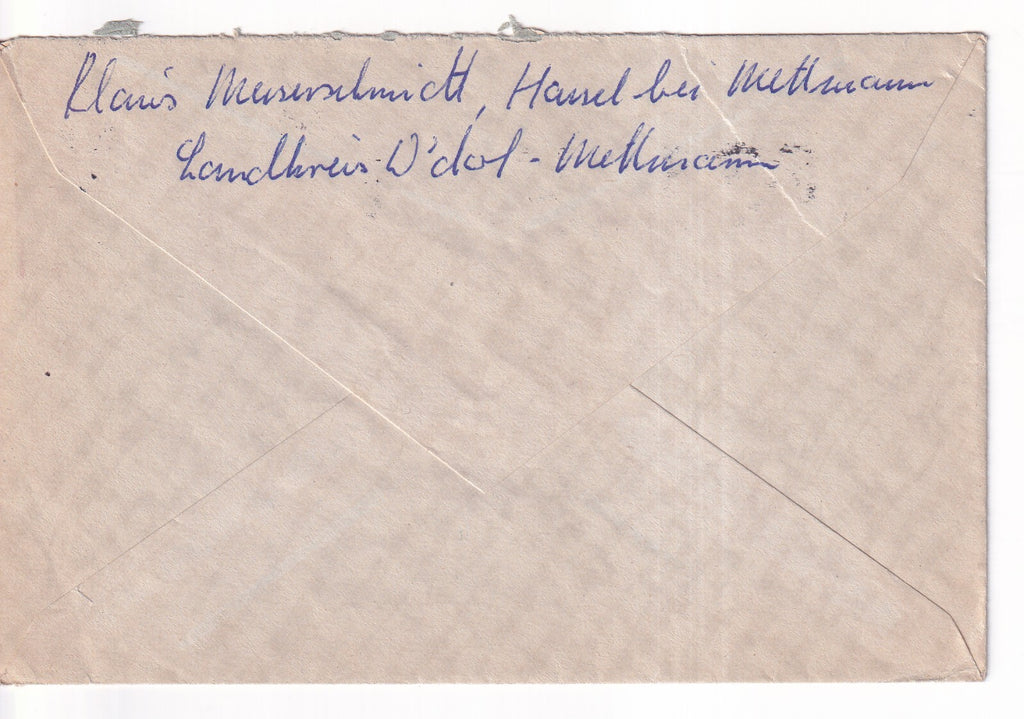 Klaus Messerschmidt, Hassel bei Mettmann
Landkreis D'dorf - Mettmann